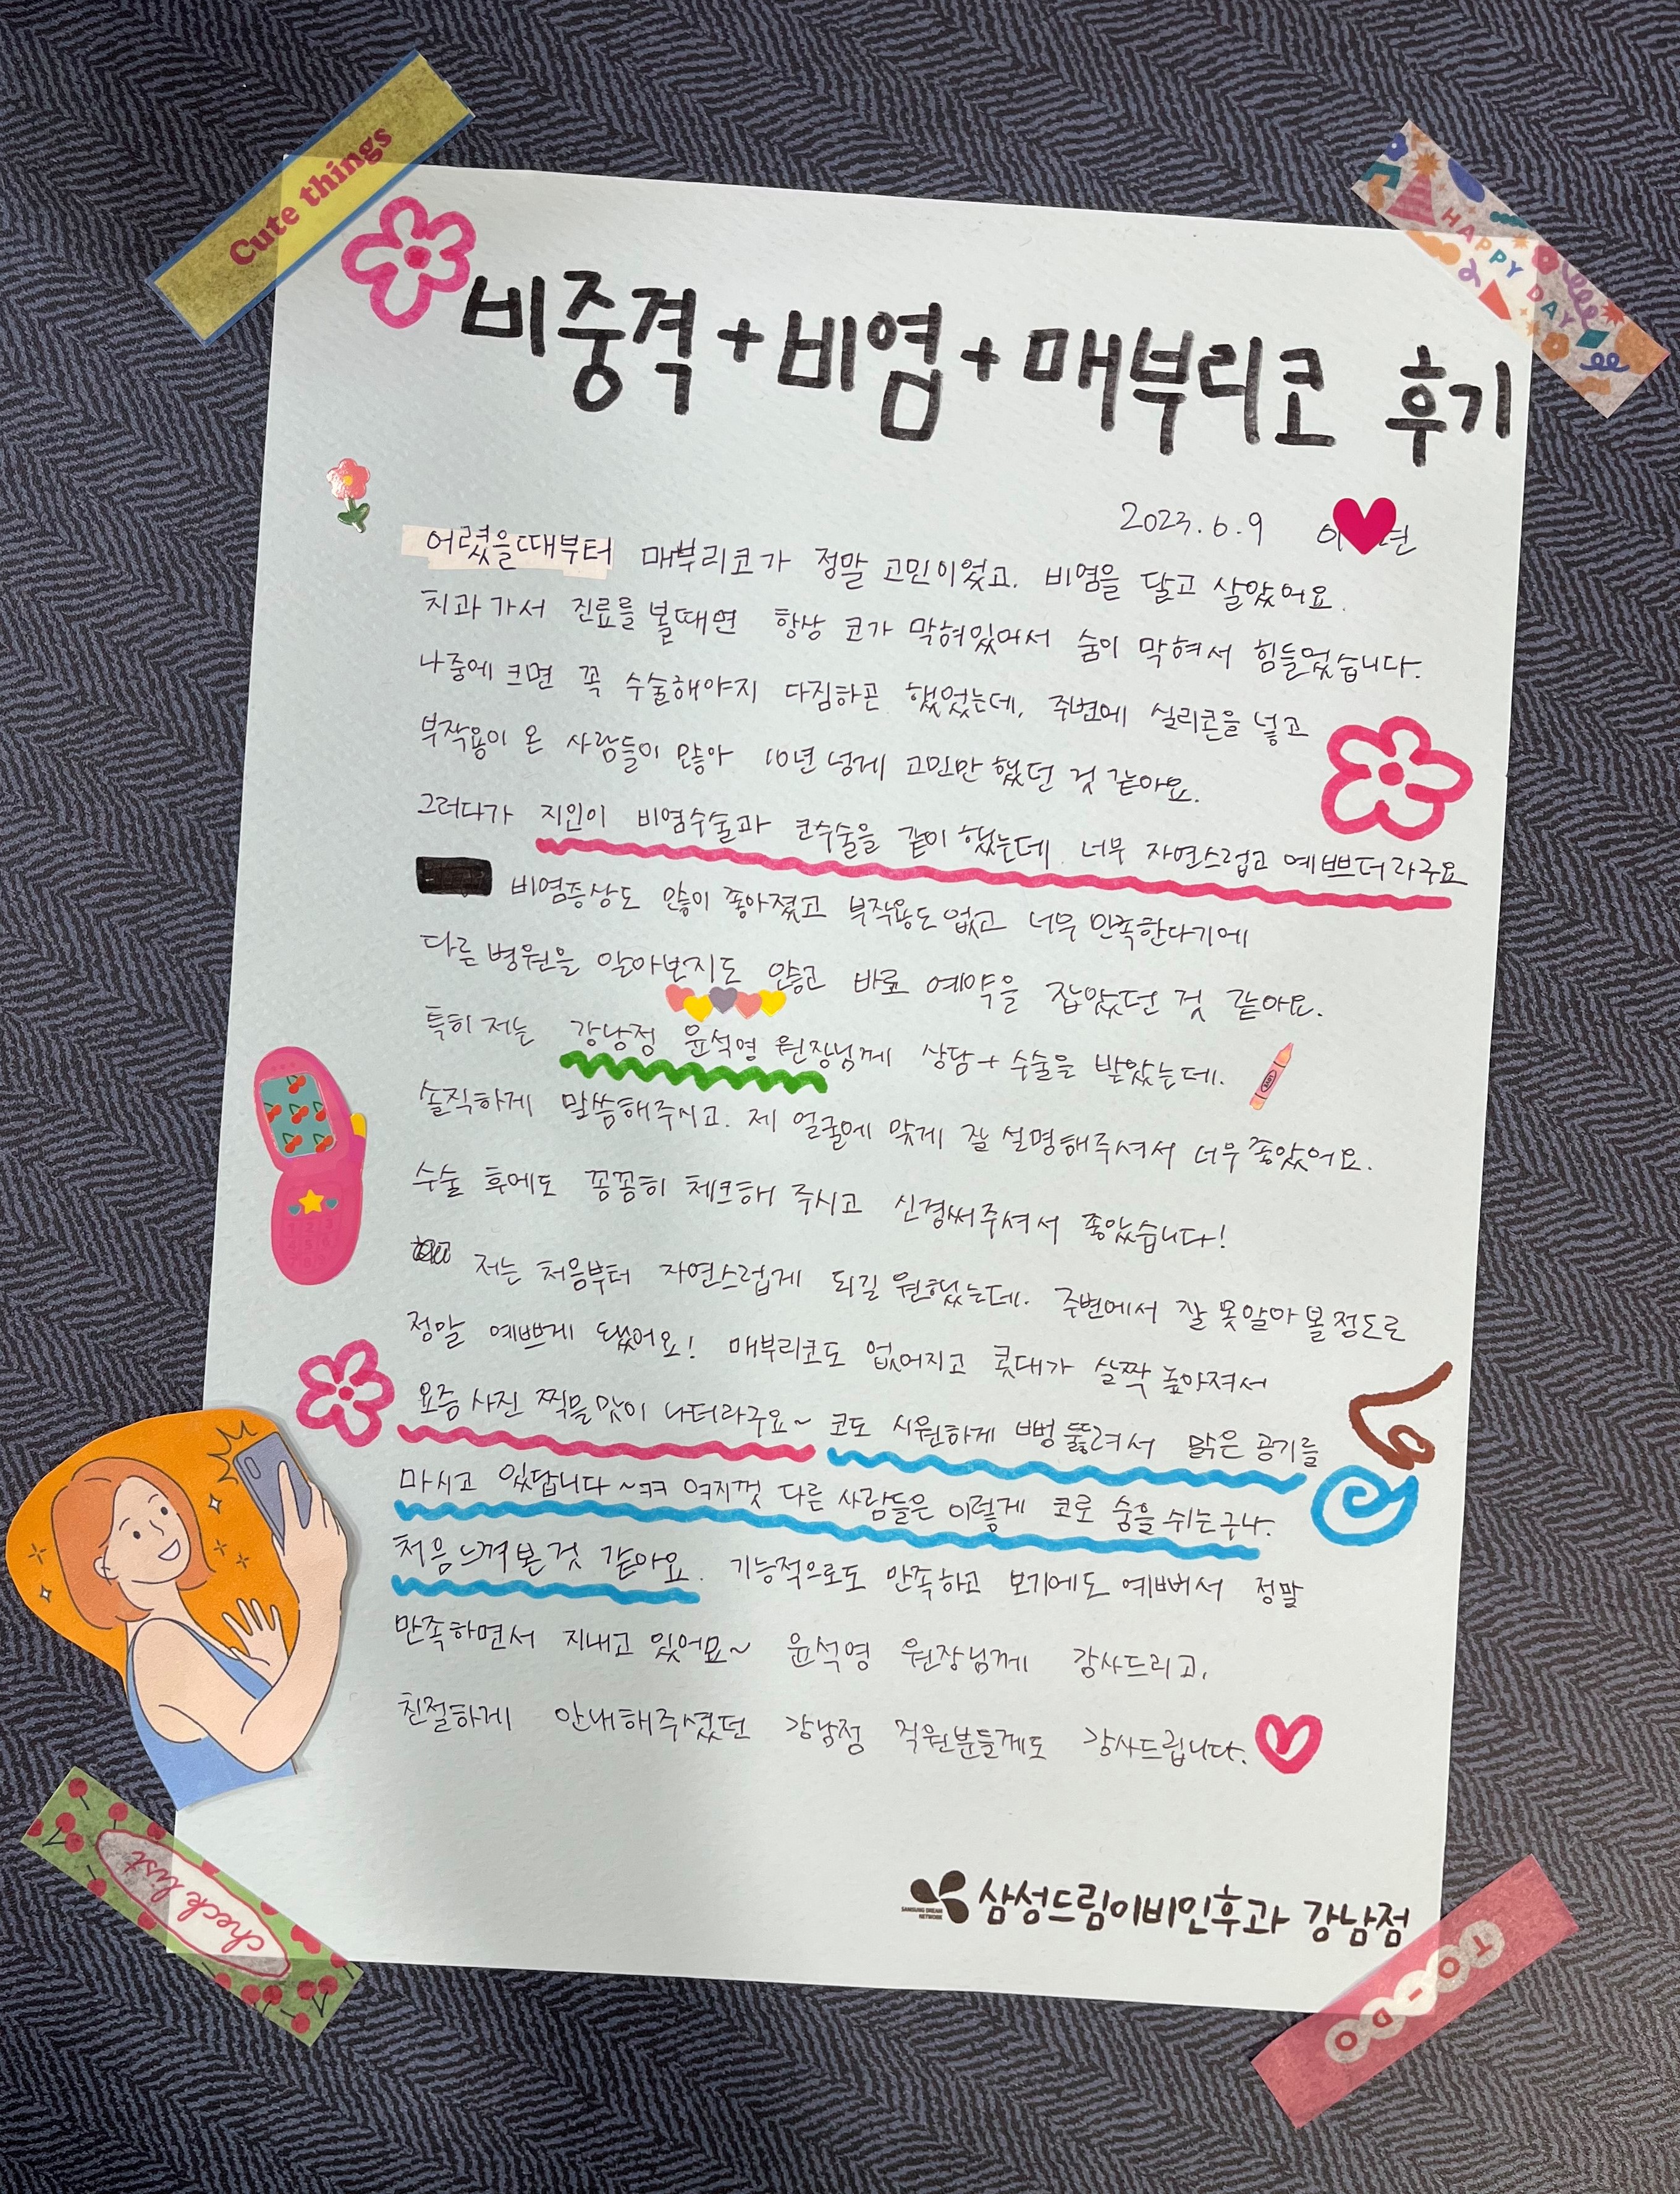 Cute things
HAPPY DAY
비중격+비염+매부리코 후기
2023.6.9 이
어렸을때부터 매부리코가 정말 고민이었고, 비염을 달고 살았어요.
치과가서 진료를 볼때면 항상 코가 막혀있어서 숨이 막혀서 힘들었습니다.
나중에 크면 꼭 수술해야지 다짐하곤 했었는데, 주변에 실리콘을 넣고
부작용이 온 사람들이 많아 10년 넘게 고민만 했던 것 같아요.
그러다가 지인이 비염수술과 코수술을 같이 했는데 너무 자연스럽고 예쁘더라구요
비염증상도 많이 좋아졌고 부작용도 없고 너무 만족한다기에
다른병원을 알아보지도 않고 바로 예약을 잡았던 것 같아요.
특히 저는 강남점 윤석영 원장님께 상담+수술을 받았는데.
솔직하게 말씀해주시고. 제 얼굴에 맞게 잘 설명해주셔서 너무 좋았어요.
수술 후에도 꼼꼼히 체크해 주시고 신경써주셔서 좋았습니다!
저는 처음부터 자연스럽게 되길 원했는데. 주변에서 잘 못알아 볼정도로
정말 예쁘게 됐어요! 매부리코도 없어지고 콧대가 살짝 높아져서
요즘 사진 찍을맛이 나더라구요~ 코도 시원하게 뻥 뚫려서 맑은 공기를
마시고 있답니다~ㅋㅋ 여지껏 다른 사람들은 이렇게 코로 숨을 쉬는구나.
처음느껴본것 같아요. 기능적으로도 만족하고 보기에도 예뻐서 정말
만족하면서 지내고 있어요~ 윤석영 원장님께 감사드리고,
친절하게 안내해주셨던 강남점 직원분들께도 감사드립니다.
SAMSUNG DREAM NETWORK
삼성드림이비인후과 강남점
check list
TO-DO